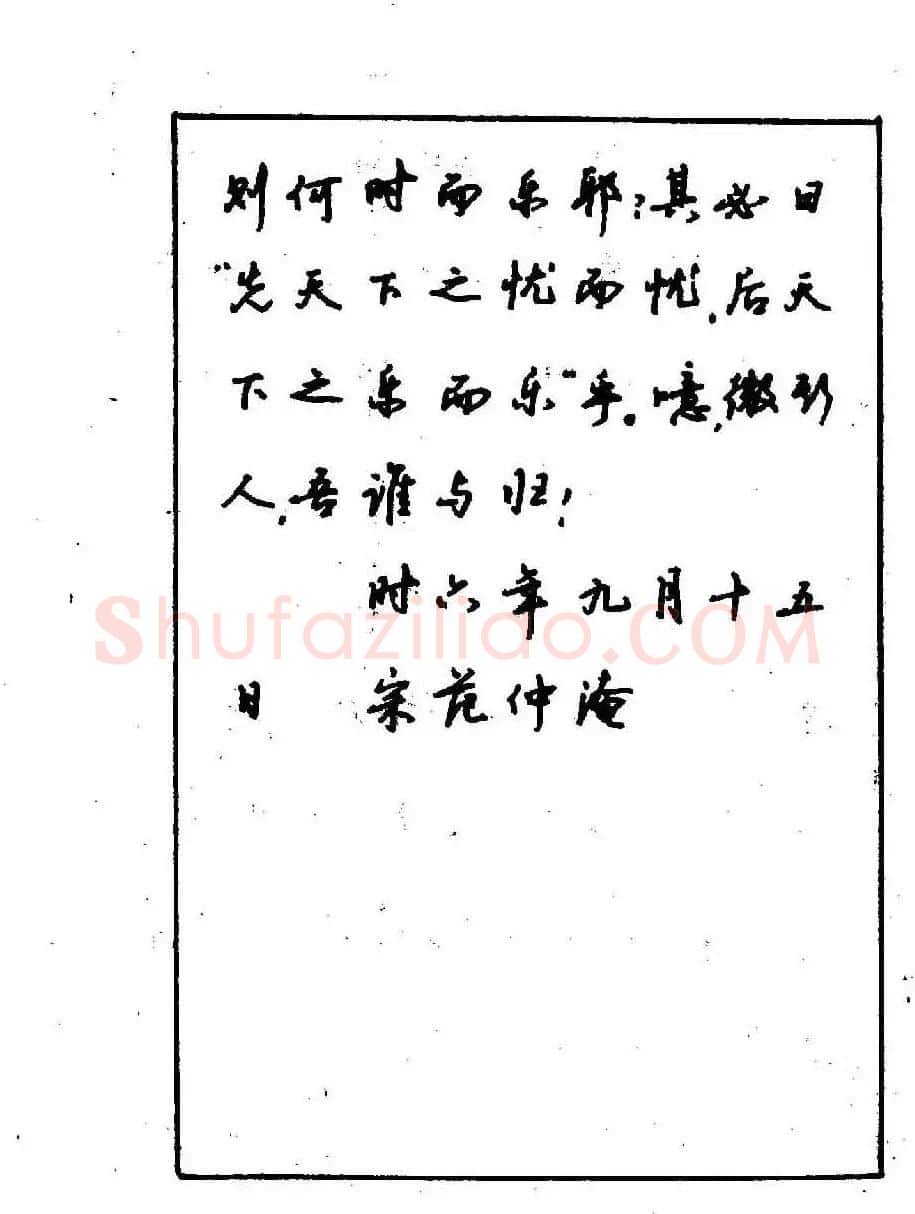 则何时而乐耶?其必曰
“先天下之忧而忧,后天
下之乐而乐”乎。噫,微斯
人,吾谁与归!
时六年九月十五
日 宋范仲淹
Shufaziliao.COM